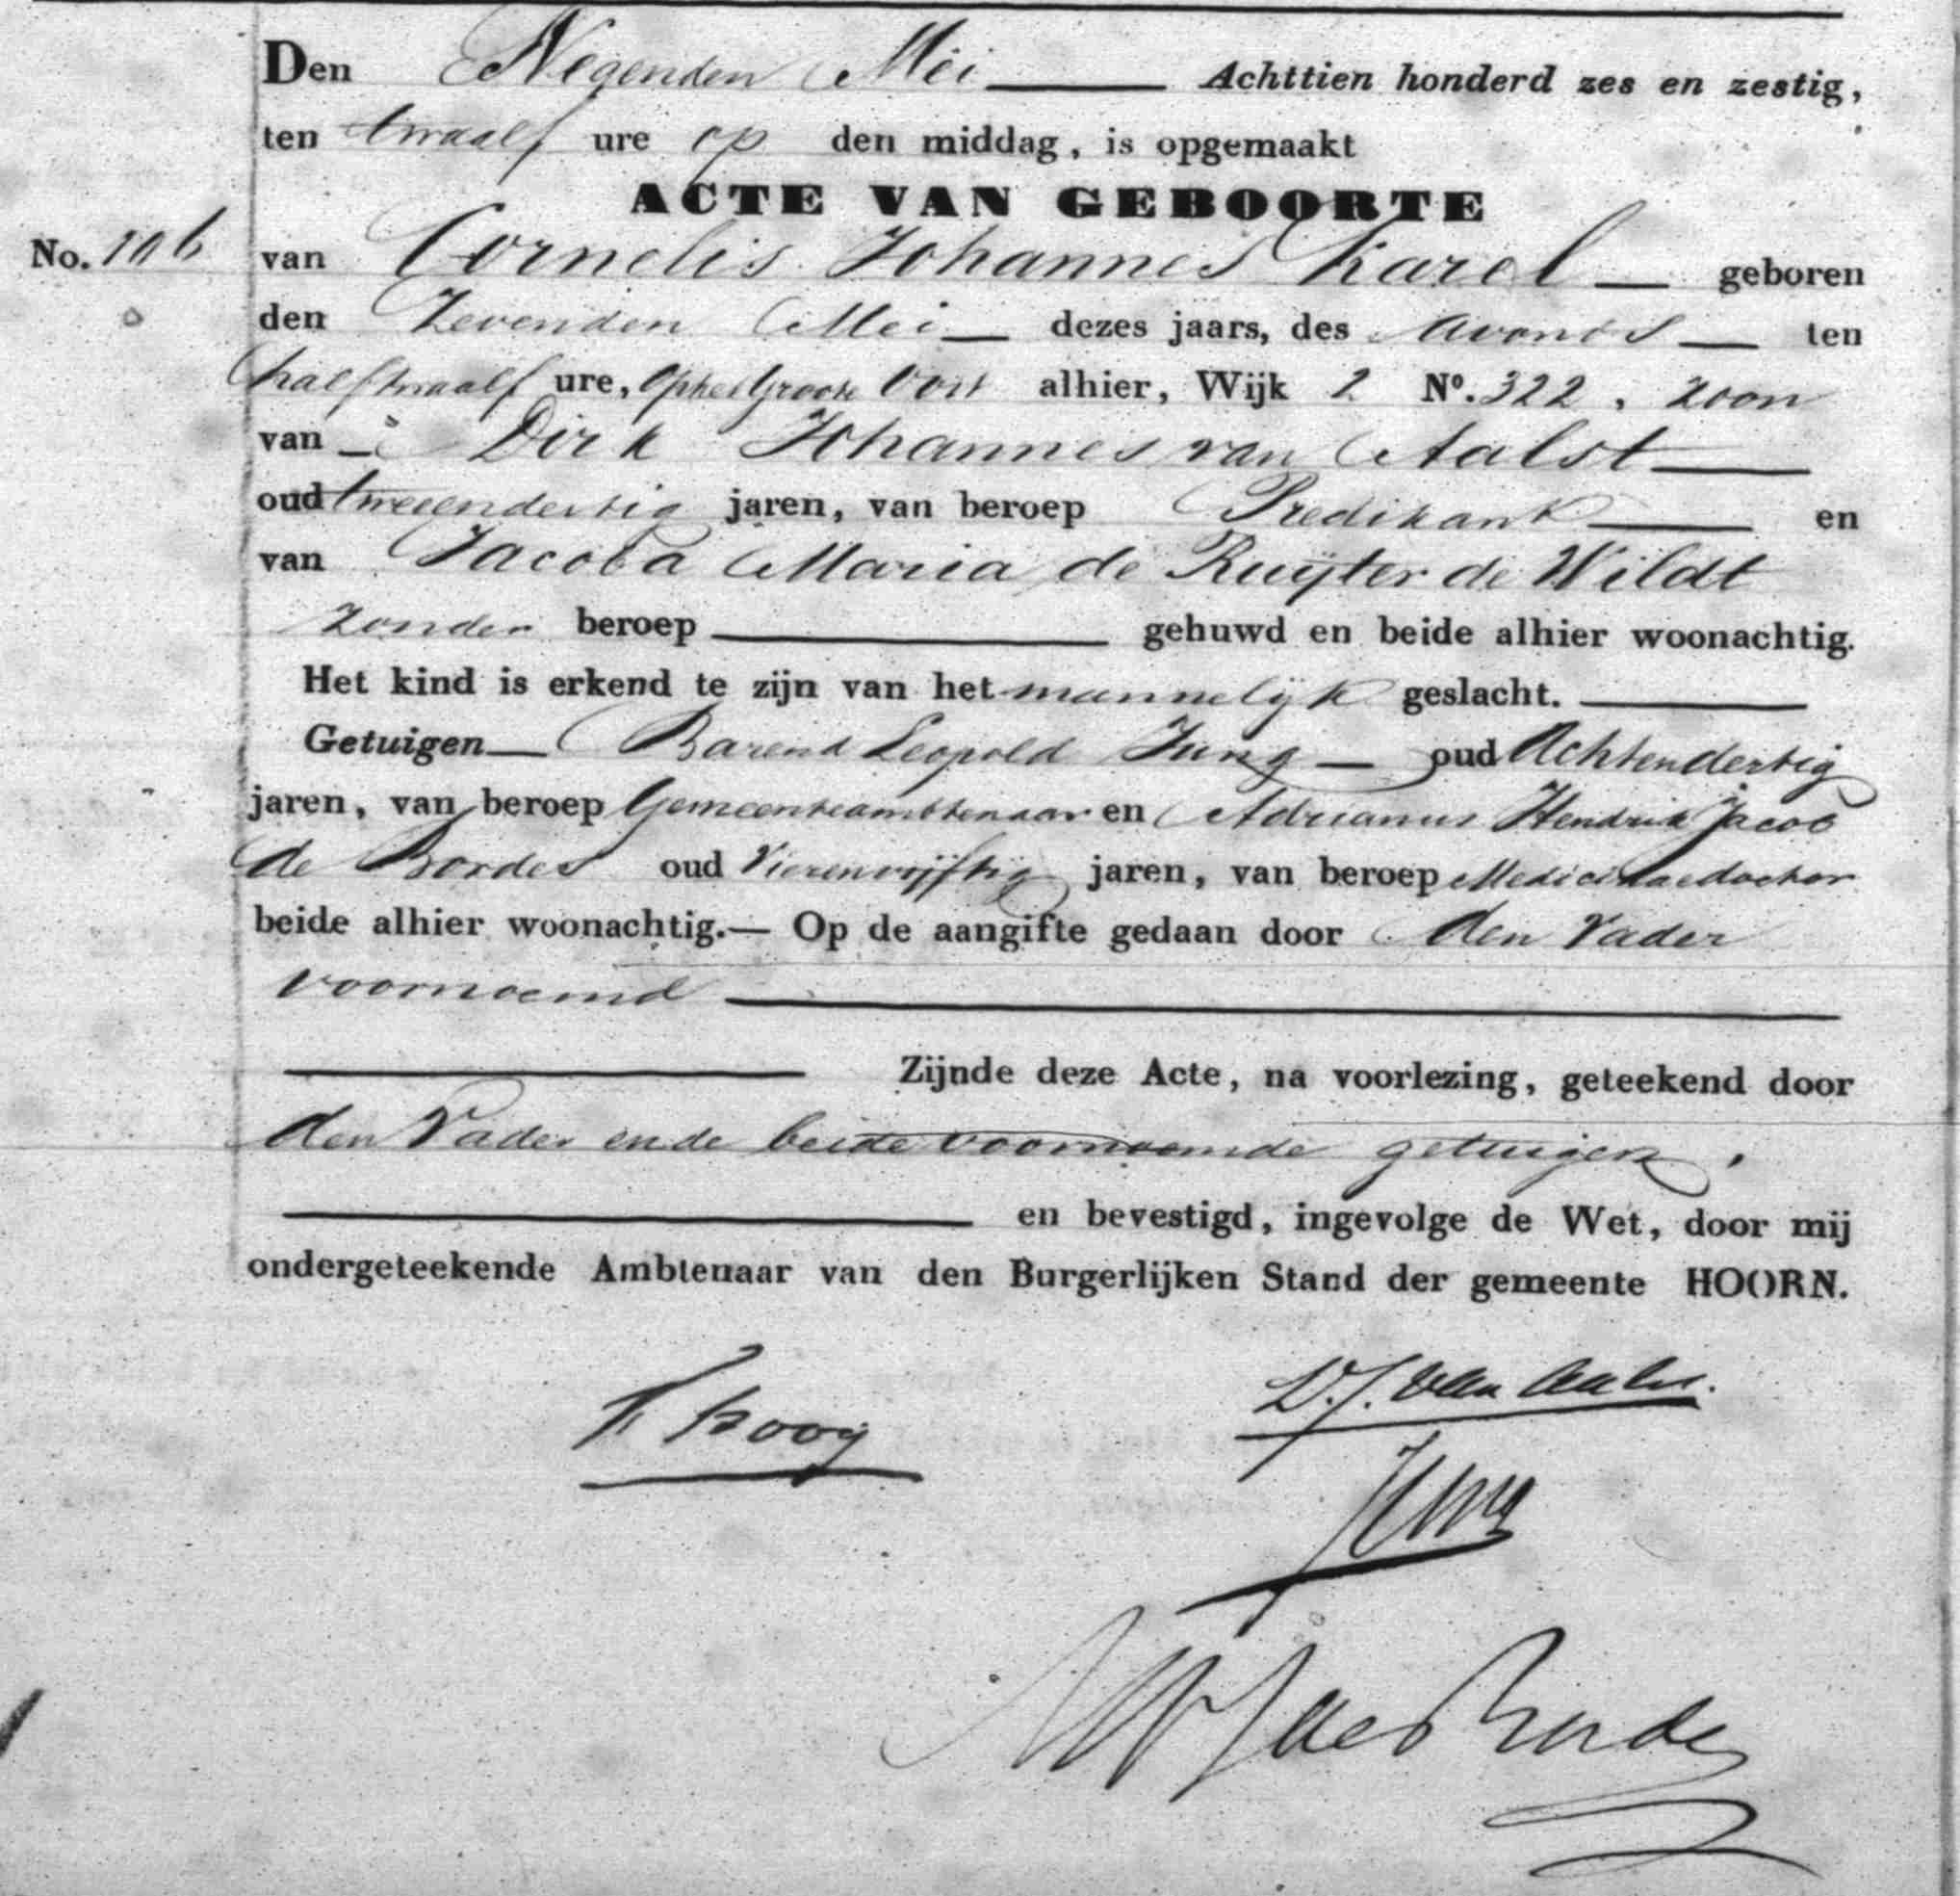 Den Negenden Mei Achttien honderd zes en zestig,
ten twaalf ure op den middag, is opgemaakt
ACTE VAN GEBOORTE
No. 106
van Cornelis Johannes Karel geboren
den Zevenden Mei dezes jaars, des Avonds ten
half twaalf ure, op het Groote Oost alhier, Wijk 2 No. 322, zoon
van Dirk Johannes van Aalst
oud tweeendertig jaren, van beroep Predikant en
van Jacoba Maria de Ruyter de Wildt
zonder beroep gehuwd en beide alhier woonachtig.
Het kind is erkend te zijn van het mannelijk geslacht.
Getuigen Barend Leopold Jung oud Achtendertig
jaren, van beroep Gemeenteambtenaar en Adrianus Hendrik Jacob
de Bordes oud Vierenvijftig jaren, van beroep Medicinaedoctor
beide alhier woonachtig.— Op de aangifte gedaan door den Vader
voornoemd
Zijnde deze Acte, na voorlezing, geteekend door
den Vader en de beide voornoemde getuigen.
en bevestigd, ingevolge de Wet, door mij
ondergeteekende Ambtenaar van den Burgerlijken Stand der gemeente HOORN.
D.J. van Aalst.
Jung
de Bordes